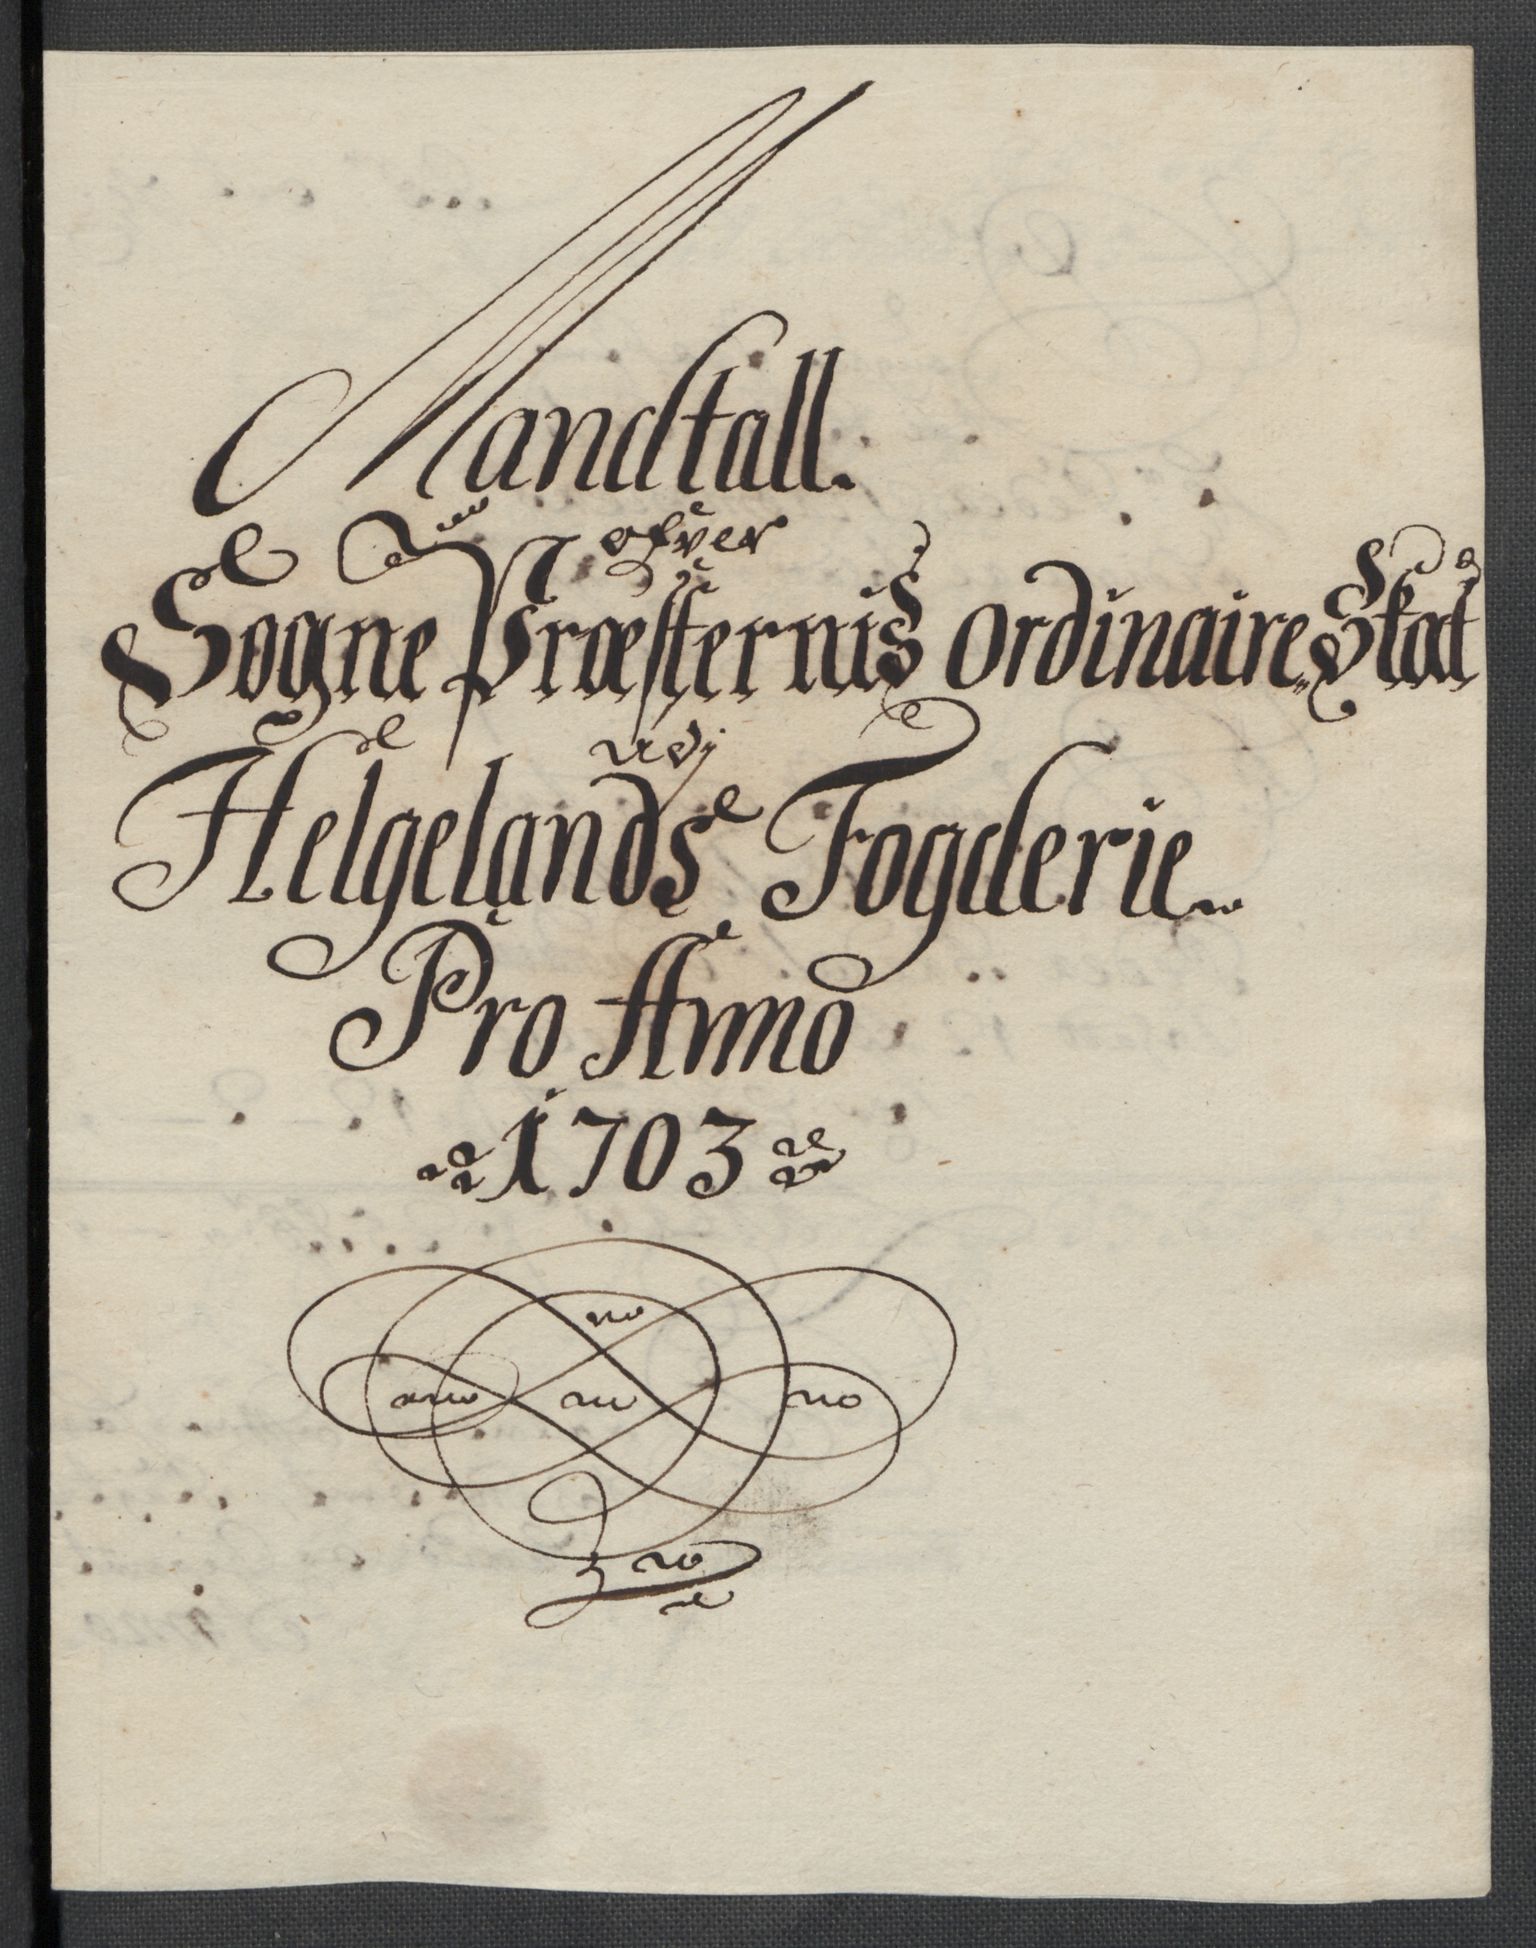 Mandtall.
ofver
Sogne Præsterniß ordinaire Skat
udj
Helgelands Fogderie
Pro Anno
1703